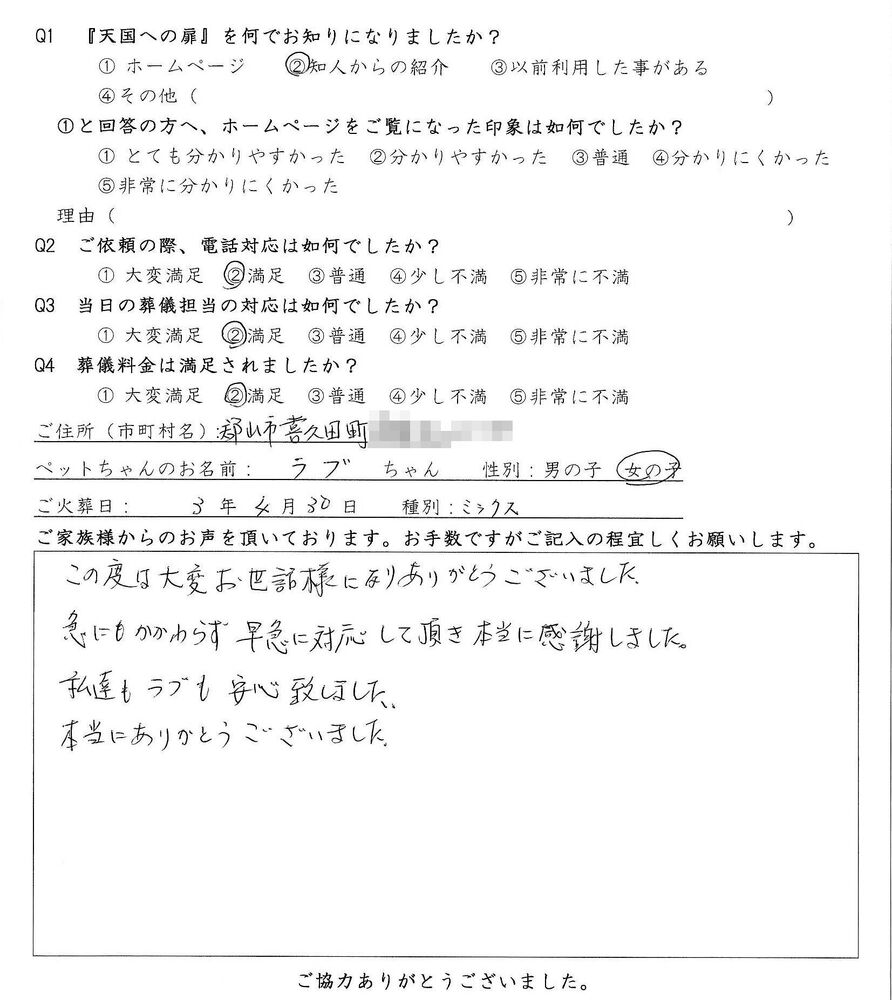 Q1 『天国への扉』を何でお知りになりましたか？
① ホームページ ②知人からの紹介 ③以前利用した事がある
④その他（ ）
①と回答の方へ、ホームページをご覧になった印象は如何でしたか？
① とても分かりやすかった ②分かりやすかった ③普通 ④分かりにくかった
⑤非常に分かりにくかった
理由（ ）
Q2 ご依頼の際、電話対応は如何でしたか？
① 大変満足 ②満足 ③普通 ④少し不満 ⑤非常に不満
Q3 当日の葬儀担当の対応は如何でしたか？
① 大変満足 ②満足 ③普通 ④少し不満 ⑤非常に不満
Q4 葬儀料金は満足されましたか？
① 大変満足 ②満足 ③普通 ④少し不満 ⑤非常に不満
ご住所（市町村名）：郡山市喜久田町
ペットちゃんのお名前： ラブ ちゃん 性別：男の子 女の子
ご火葬日： 3 年 4 月 30 日 種別：ミックス
ご家族様からのお声を頂いております。お手数ですがご記入の程宜しくお願いします。
この度は大変お世話様になりありがとうございました。
急にもかかわらず早急に対応して頂き本当に感謝しました。
私達もラブも安心致しました。
本当にありがとうございました。
ご協力ありがとうございました。